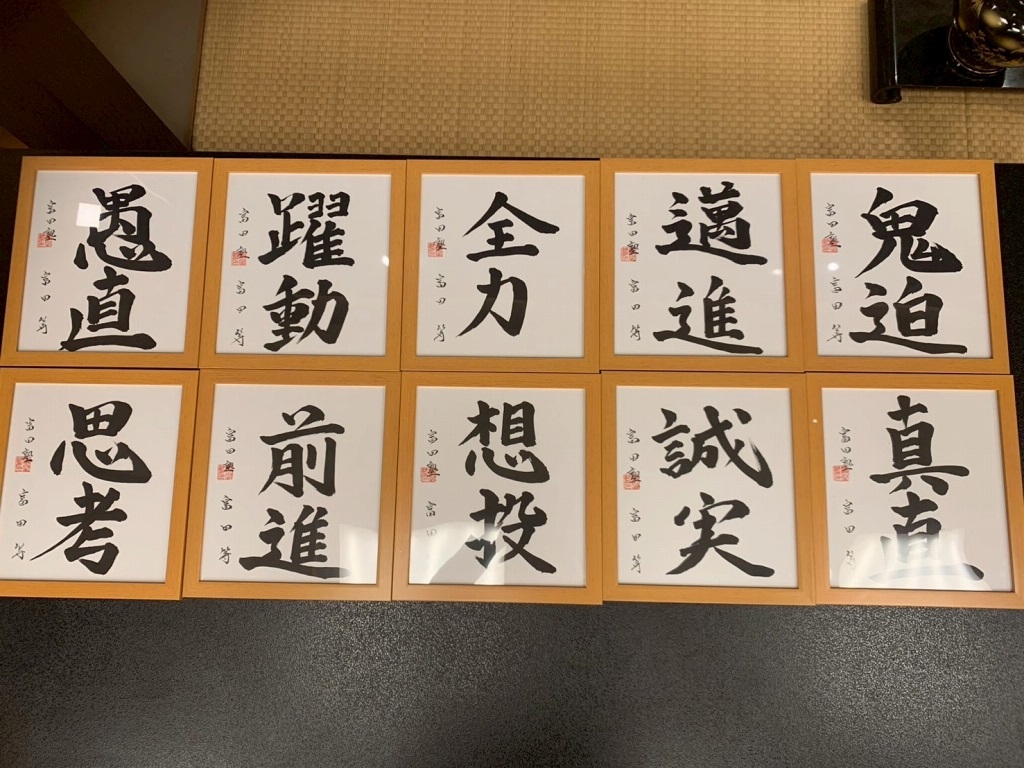 愚直
富田塾 富田
躍動
富田塾 富田
全力
富田塾 富田
邁進
富田塾 富田
鬼迫
富田塾 富田
思考
富田塾 富田
前進
富田塾 富田
想投
富田塾 富田
誠実
富田塾 富田
真直
富田塾 富田